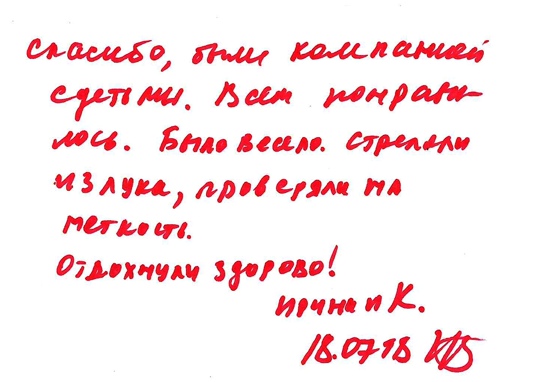 Спасибо, были компанией
с детьми. Всем понрави-
лось. Было весело. Стреляли
из лука, проверяли на
меткость.
Отдохнули здорово!
Ирина К.
18.07.18